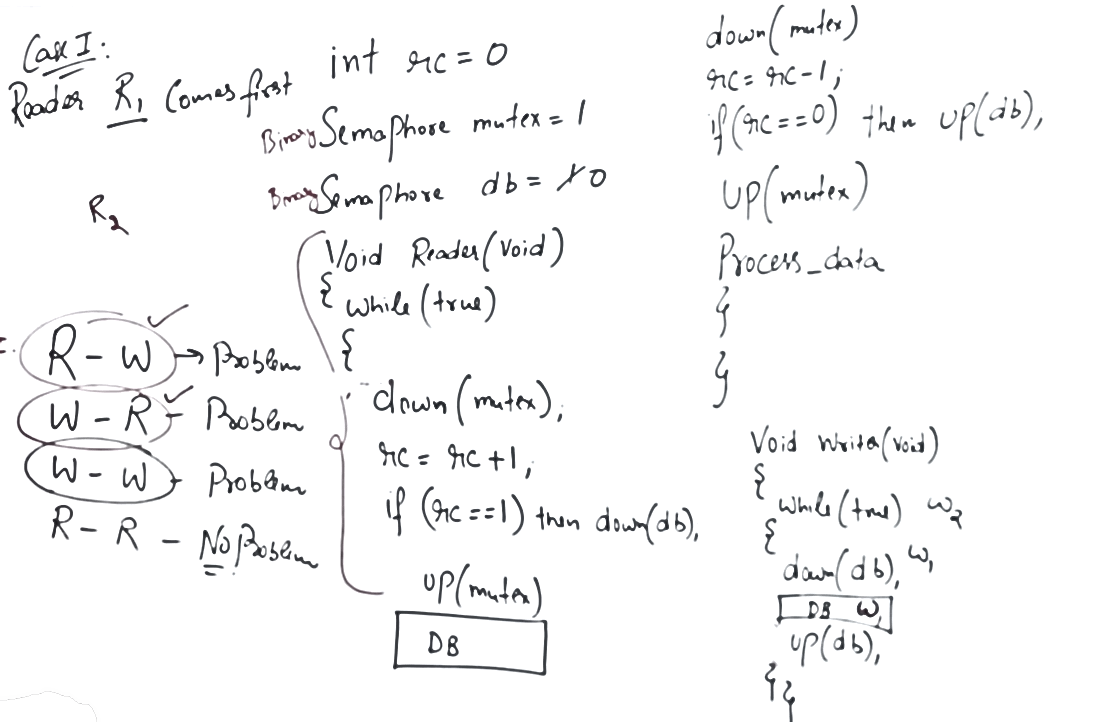 Case I:
Reader R1 Comes first
R2
R - W → Problem
W - R - Problem
W - W - Problem
R - R - No Problem
int rc = 0
Binary Semaphore mutex = 1
Binary Semaphore db = 1 0
Void Reader(Void)
{ while(true)
{
down(mutex);
rc = rc + 1;
if (rc == 1) then down(db);
up(mutex)
DB
down(mutex)
rc = rc - 1;
if(rc == 0) then up(db);
UP(mutex)
Process_data
}
}
Void Writer(void)
{
while(true) W2
{
down(db); W1
DB W1
up(db);
}}